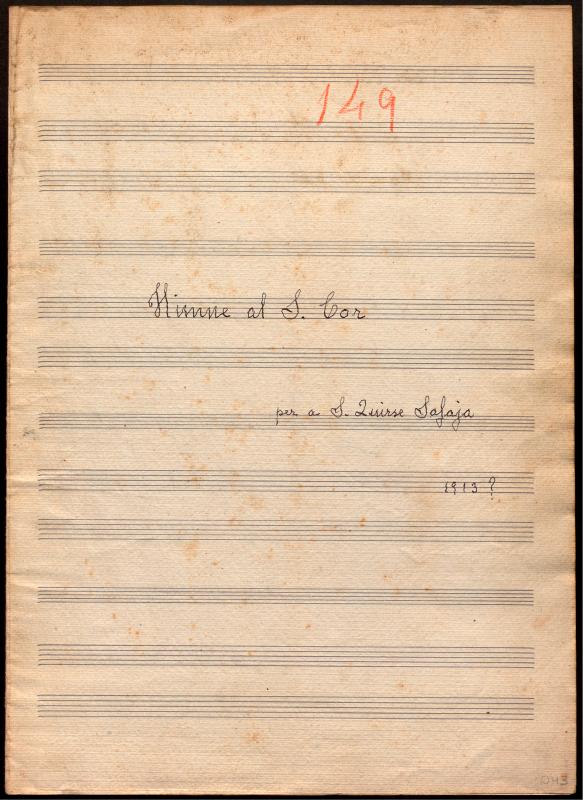 149
Himne al S. Cor
per a S. Quirse Safaja
1913?
D43